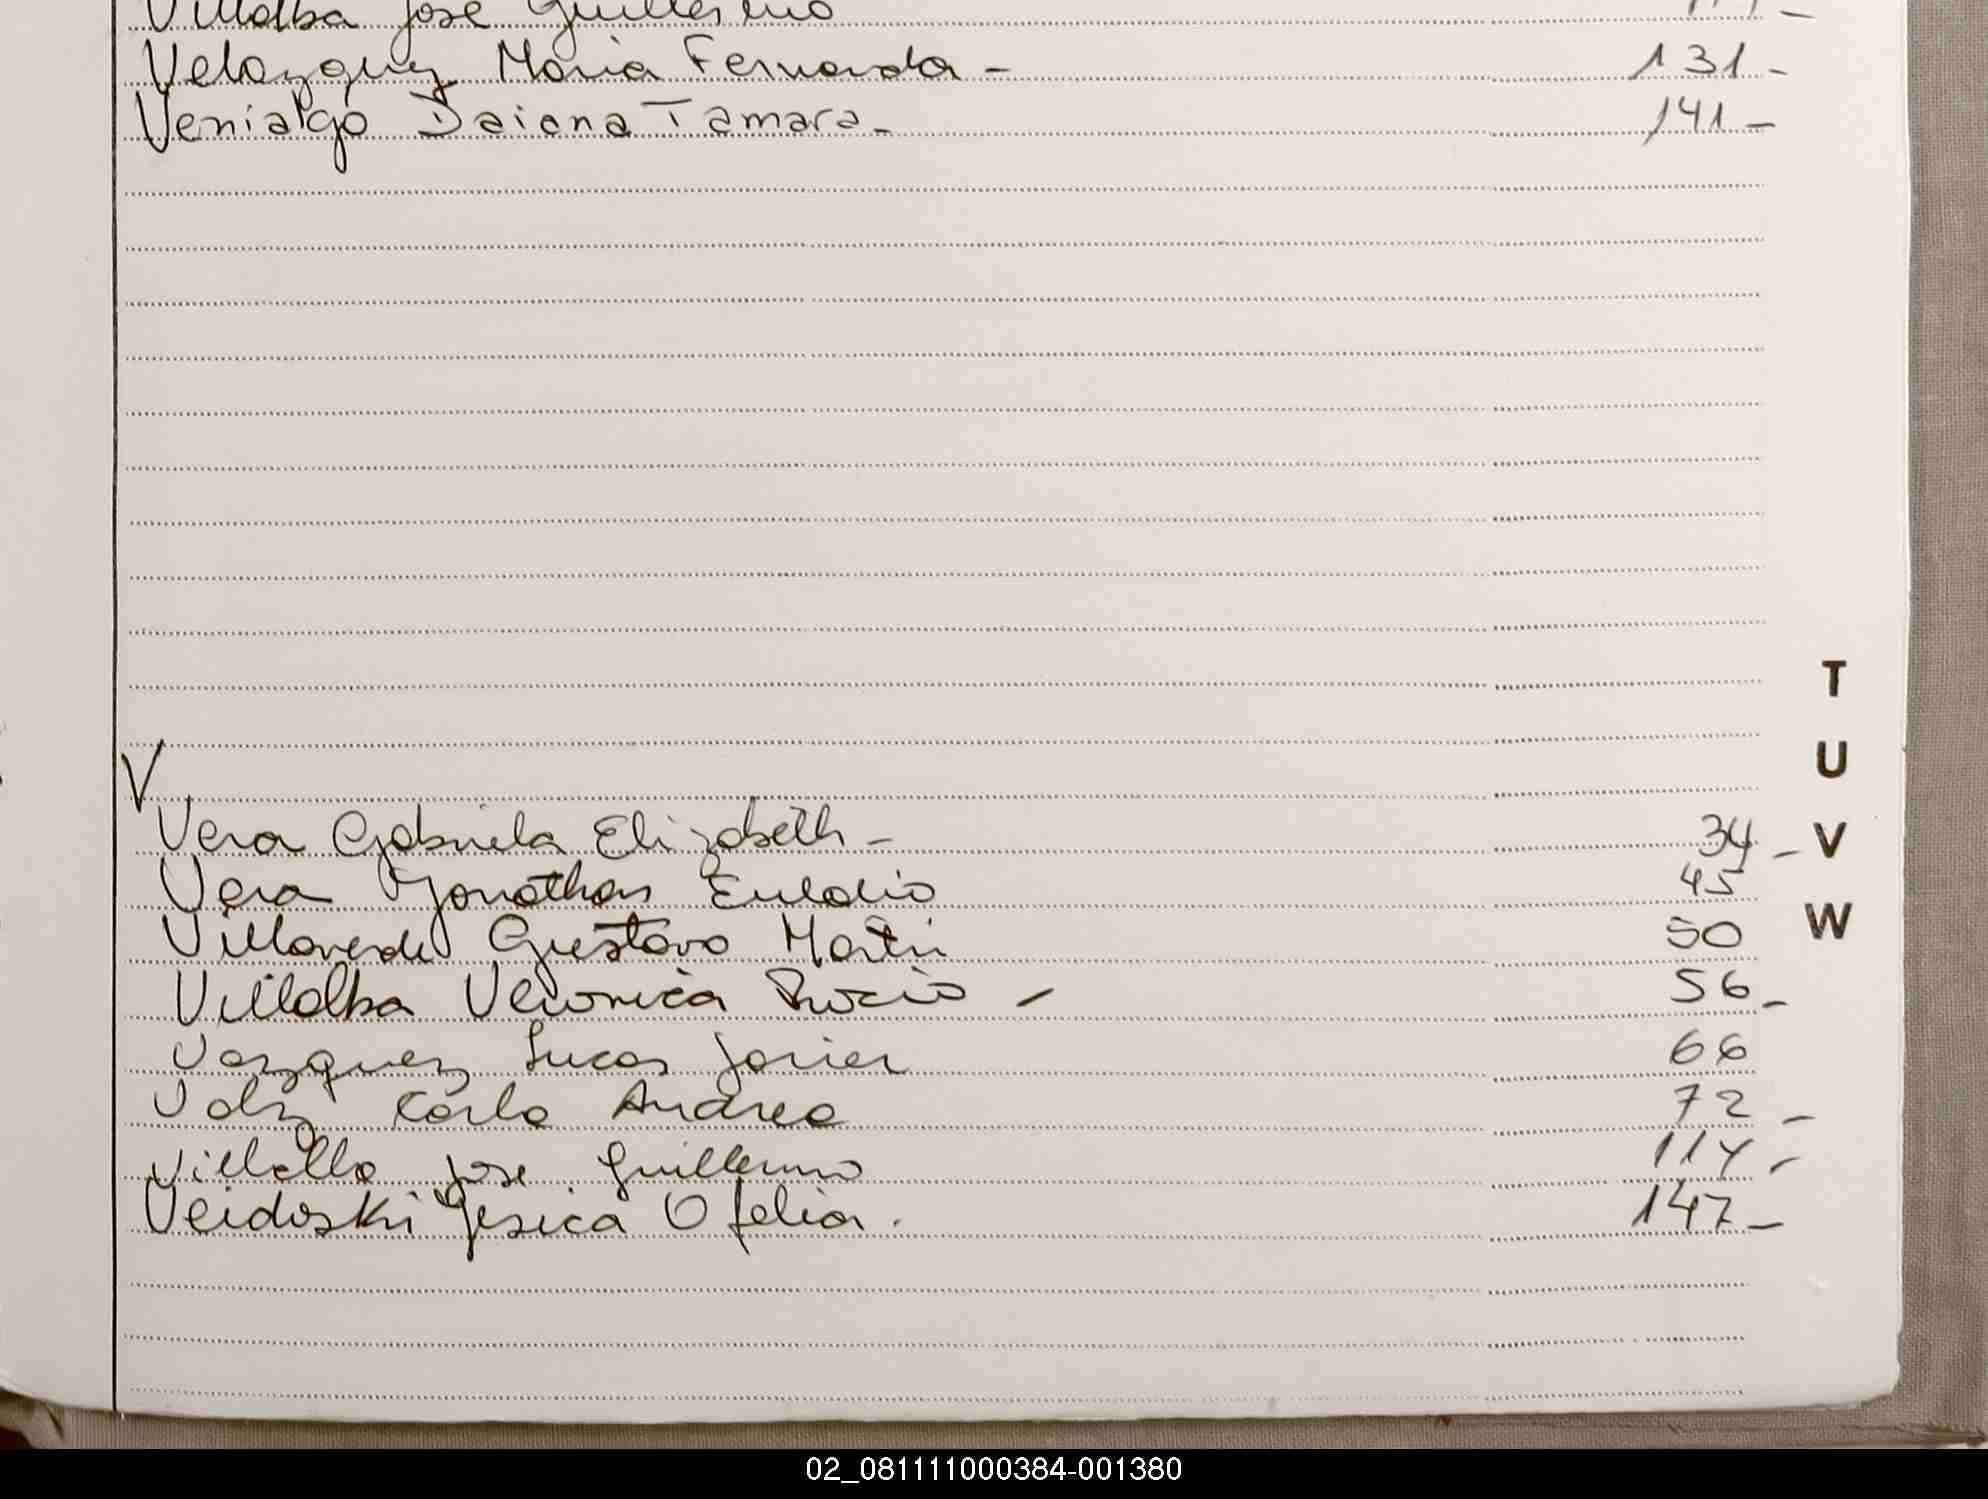 Villalba José Guillermo
Velazquez Maria Fernanda - 131 -
Venialgo Daiana Tamara - 141 -
T
U
V
Vera Gabriela Elizabeth - 34 - V
Vera Jonathan Eulalio 45
Villaverde Gustavo Martin 50 W
Villalba Veronica Rocio - 56 -
Vazquez Lucas Javier 66
Valz Carla Andrea 72 -
Villalba Jose Guillermo 114 -
Veidoski Yesica Ofelia. 147 -
02_081111000384-001380